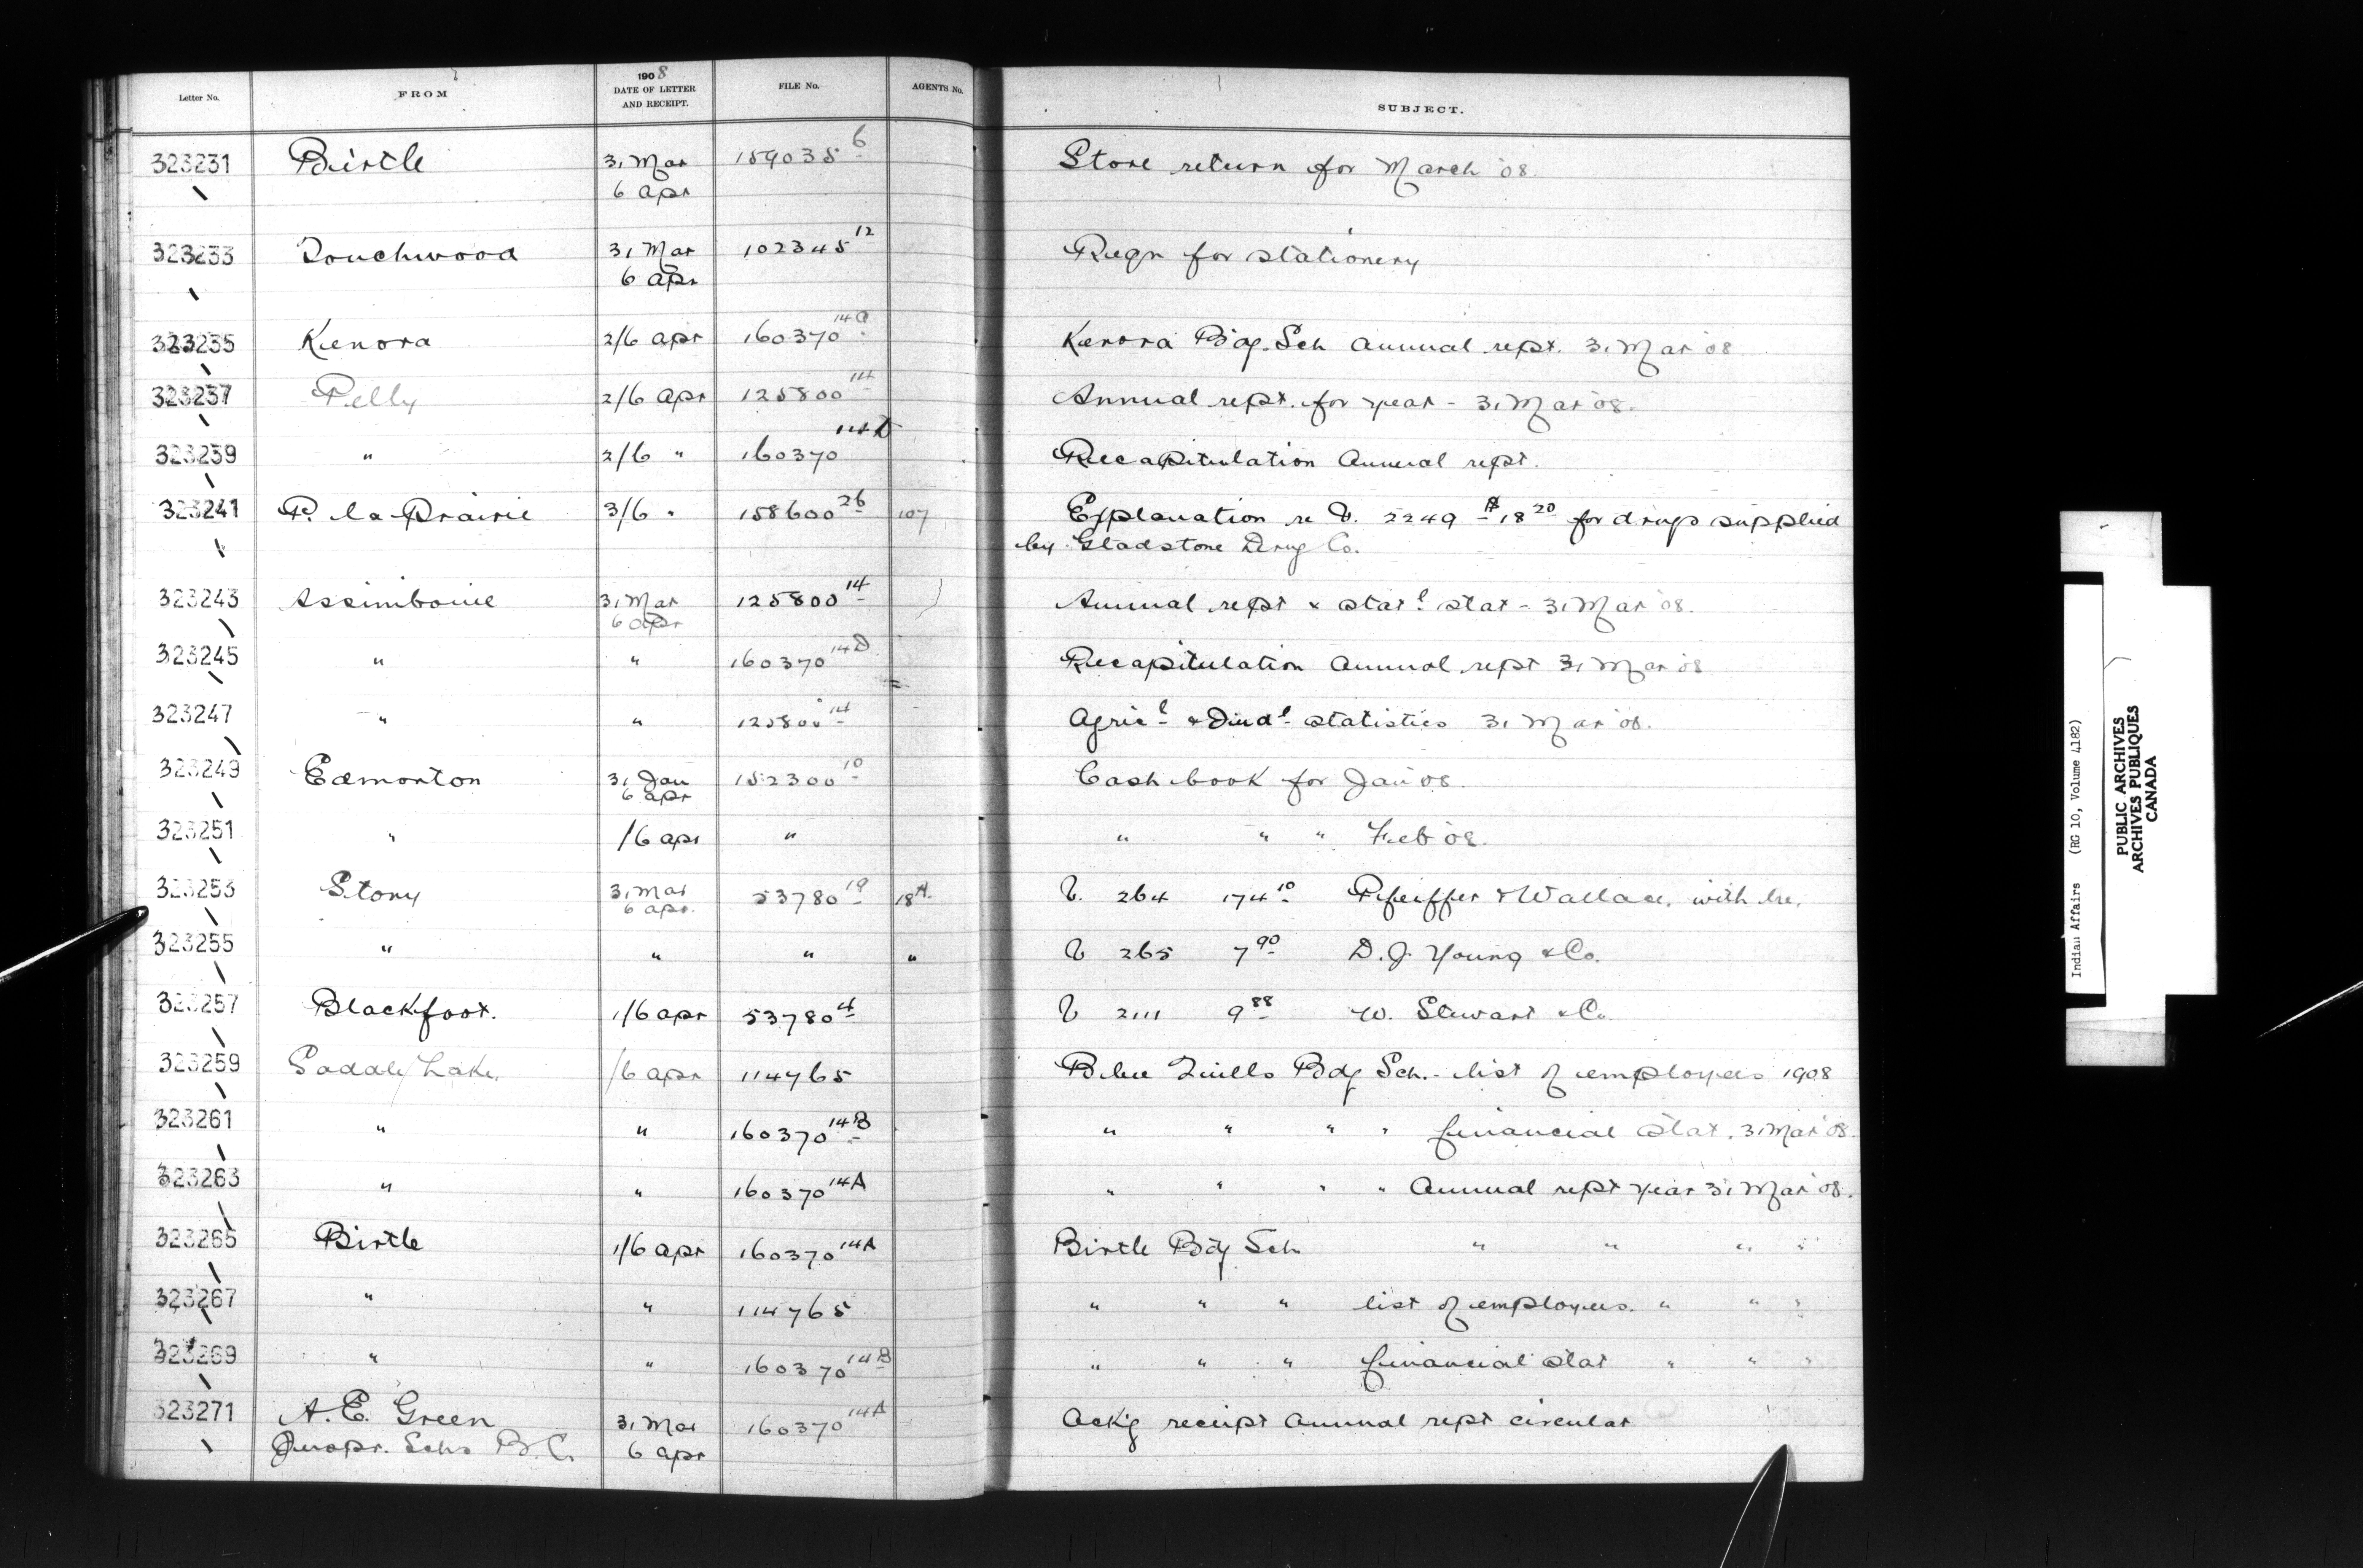 Letter No. FROM 1908 DATE OF LETTER AND RECEIPT. FILE No. AGENTS No. SUBJECT.
323231 Birtle 31 Mar 159035 6 Store return for March '08
6 Apr
323233 Touchwood 31 Mar 102345 12 Reqn for stationery
6 Apr
323235 Kenora 2/6 Apr 160370 14a Kenora Bdg. Sch Annual rept. 31 Mar '08
323237 Pelly 2/6 Apr 125800 14 Annual rept. for year - 31 Mar '08.
323239 " 2/6 " 160370 14D Recapitulation Annual rept.
323241 P. la Prairie 3/6 " 158600 26 107 Explanation re V. 2249 $18 20 for drugs supplied
by Gladstone Drug Co.
323243 Assiniboine 31 Mar 125800 14 Annual rept & stat l stat - 31 Mar '08.
6 Apr
323245 " " 160370 14D Recapitulation Annual rept 31 Mar '08
323247 " " 125800 14 Agric l & Ind l statistics 31 Mar '08.
323249 Edmonton 31 Jan 152300 10 Cash book for Jan '08.
6 Apr
323251 " /6 Apr " " " " Feb '08.
323253 Stony 31 Mar 53780 19 18A. V. 264 174 10 Pfeiffer & Wallace, with lre.
6 Apr.
323255 " " " " V 265 7 90 D. J. Young & Co.
323257 Blackfoot. 1/6 Apr 53780 4 V 2111 9 88 W. Stewart & Co.
323259 Saddle Lake. /6 Apr 114765 Blue Quills Bdg Sch. - list of employees 1908
323261 " " 160370 14B " " " " financial stat. 31 Mar '08.
323263 " " 160370 14A " " " " Annual rept year 31 Mar '08.
323265 Birtle 1/6 Apr 160370 14A Birtle Bdg Sch " " " "
323267 " " 114765 " " " list of employees. " " "
323269 " " 160370 14B " " " financial stat " " "
323271 A. E. Green 31 Mar 160370 14A Ackg receipt Annual rept circular
Inspr. Schs B.C. 6 Apr
Indian Affairs (RG 10, Volume 4182)
PUBLIC ARCHIVES
ARCHIVES PUBLIQUES
CANADA